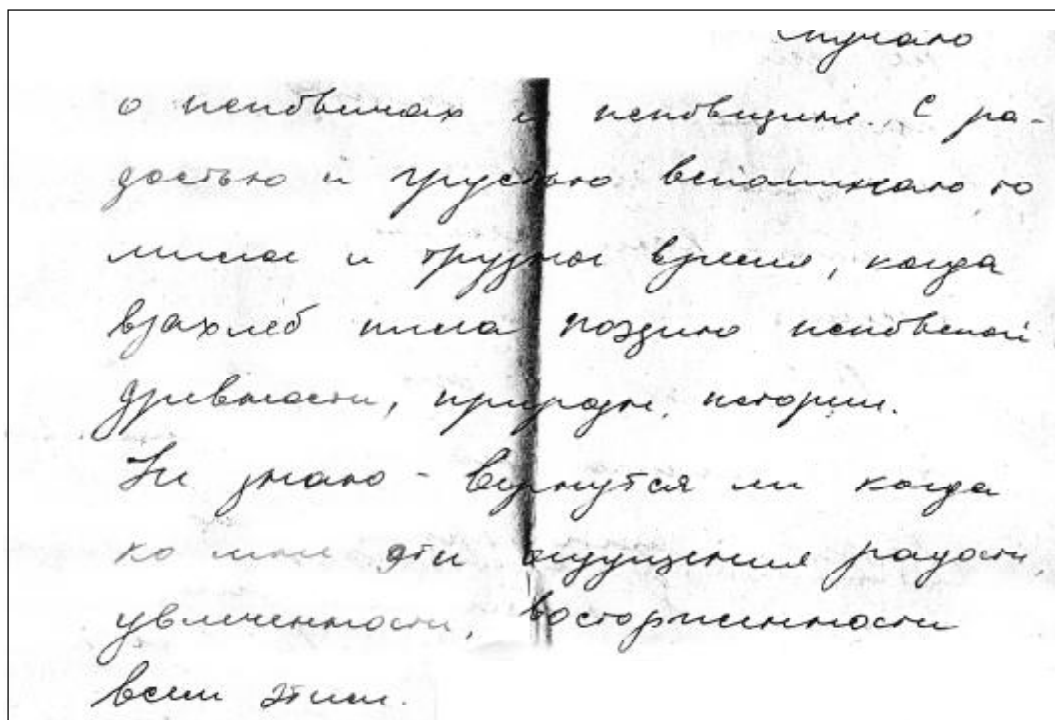 скучаю
о псковичах и псковщине. С ра-
достью и грустью вспоминаю то
милое и трудное время, когда
взахлёб пила поэзию псковской
древности, природы, истории.
Не знаю - вернутся ли когда
ко мне эти ощущения радости,
увлеченности, восторженности
всем этим.